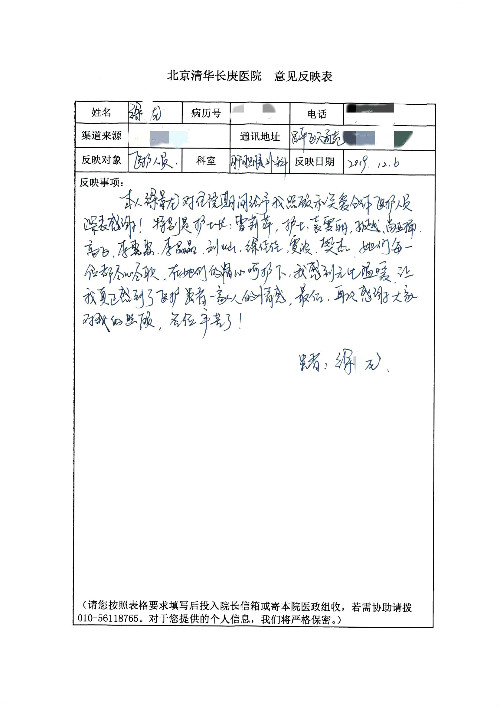 北京清华长庚医院 意见反映表
姓名 徐 病历号 电话
渠道来源 通讯地址
反映对象 医护人员. 科室 肝胆胰外科 反映日期 2019. 12. 6
反映事项：
本人徐 对住院期间给予我照顾和关爱的全体医护人员
深表感谢！特别是护士长：曹 护士：袁
李 李晶晶 刘 徐 她们每一
位都尽心尽敬，在她们的精心呵护下，我感到无比温暖，让
我真正感到了医护患者一家人的情感，最后，再次感谢大家
对我的照顾，各位辛苦了！
患者：徐
（请您按照表格要求填写后投入院长信箱或寄本院医政组收，若需协助请拨
010-56118765．对于您提供的个人信息，我们将严格保密。）